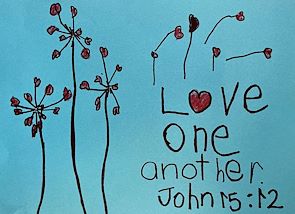 Love
one
another.
John 15:12